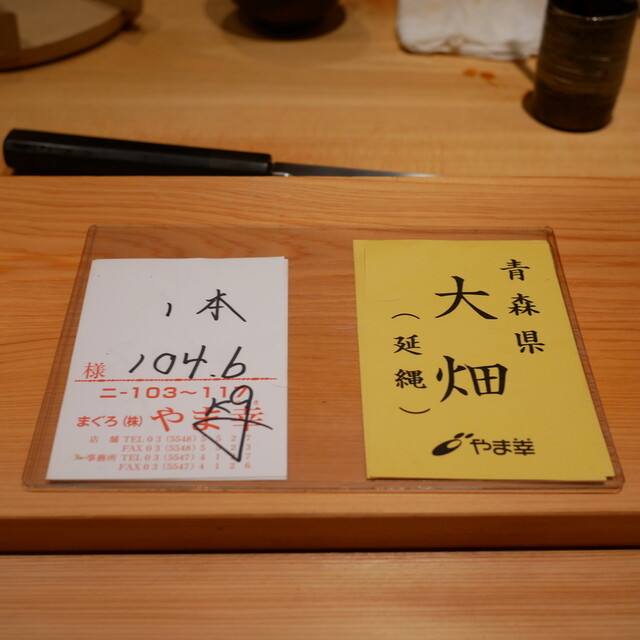 1本
様 104.6
ニ-103〜117
まぐろ(株)やま幸
店舗 TEL 03 (5548) 5
FAX 03 (5548) 5
事務所 TEL 03 (5547) 4
FAX 03 (5547) 4126
青森県
大畑
(延縄)
やま幸